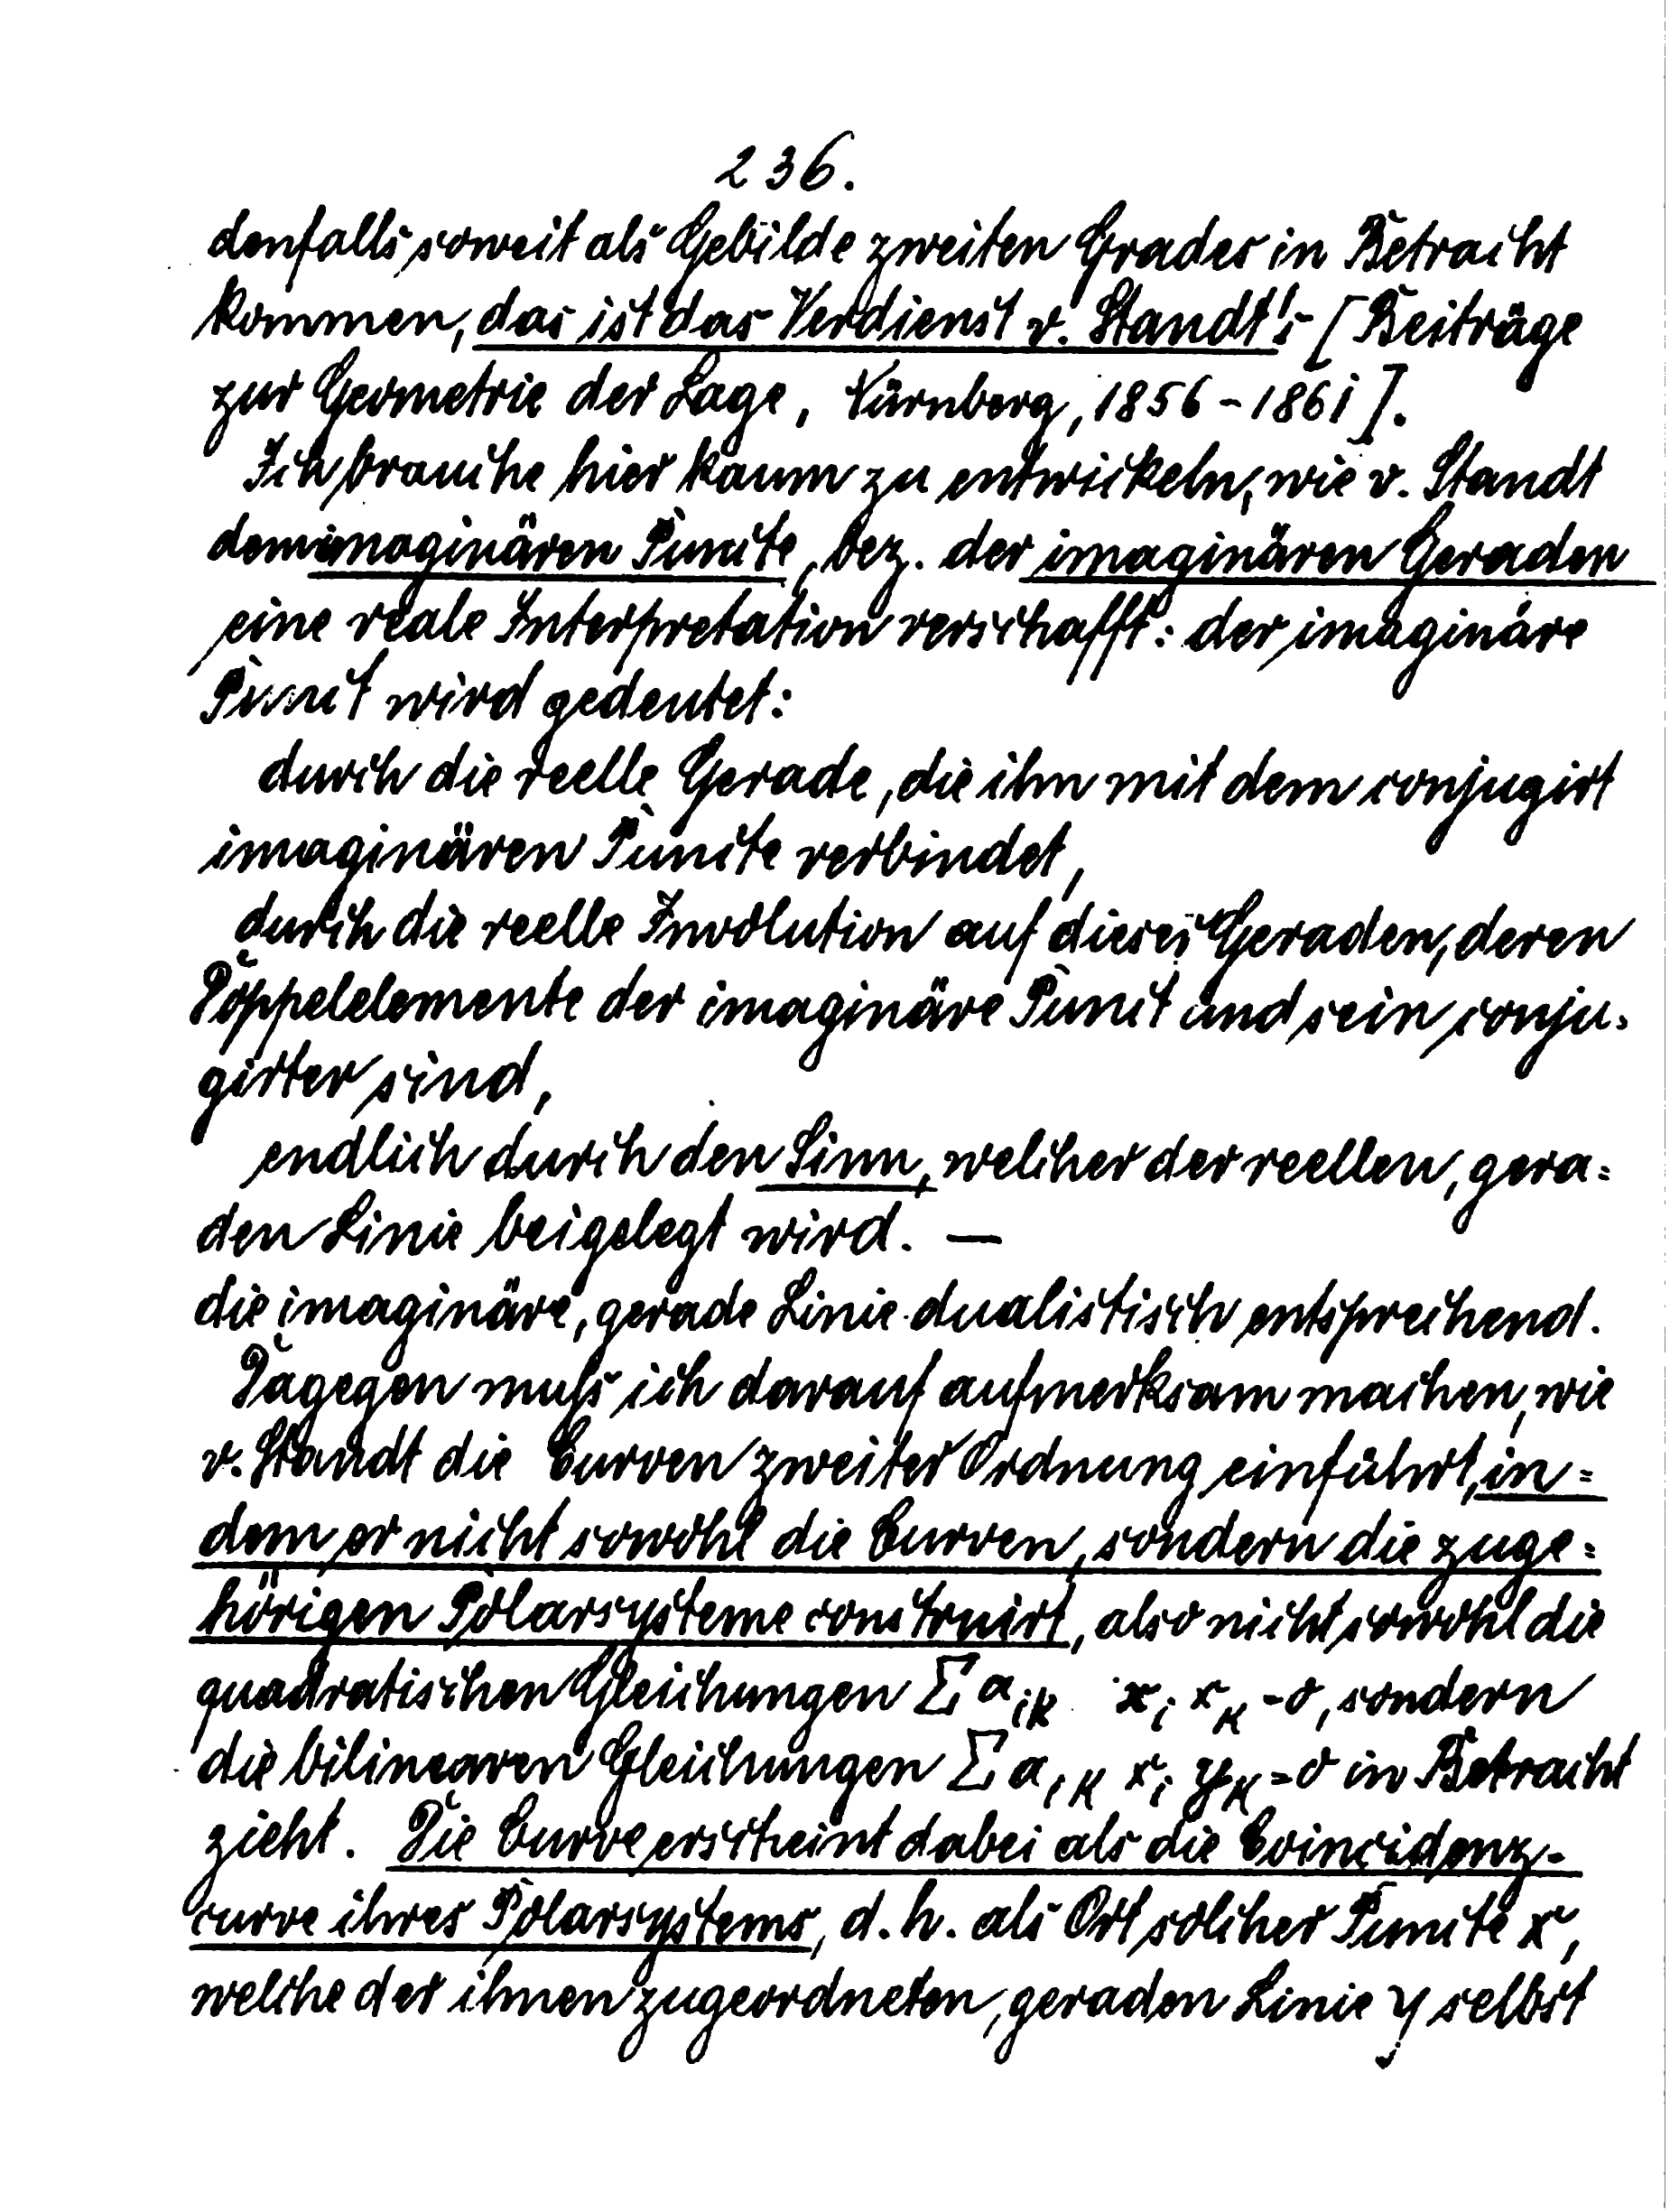 236.
denfalls soweit als Gebilde zweiten Grades in Betracht
kommen, das ist das Verdienst v. Staudt's [Beiträge
zur Geometrie der Lage, Nürnberg, 1856-1861].
Ich brauche hier kaum zu entwickeln, wie v. Staudt
dem imaginären Puncte, bez. der imaginären Geraden
eine reale Interpretation verschafft: der imaginäre
Punct wird gedeutet:
durch die reelle Gerade, die ihn mit dem conjugirt
imaginären Puncte verbindet,
durch die reelle Involution auf dieser Geraden, deren
Doppelelemente der imaginäre Punct und sein conju-
girter sind,
endlich durch den Sinn, welcher der reellen, gera=
den Linie beigelegt wird. —
die imaginäre, gerade Linie dualistisch entsprechend.
Dagegen muß ich darauf aufmerksam machen, wie
v. Staudt die Curven zweiter Ordnung einführt, in=
dem er nicht sowohl die Curven, sondern die zuge=
hörigen Polarsysteme construirt, also nicht sowohl die
quadratischen Gleichungen Σ a_ik x_i x_k = 0, sondern
die bilinearen Gleichungen Σ a_ik x_i y_k = 0 in Betracht
zieht. Die Curve erscheint dabei als die Coincidenz-
curve ihres Polarsystems, d. h. als Ort solcher Puncte x,
welche der ihnen zugeordneten, geraden Linie y selbst